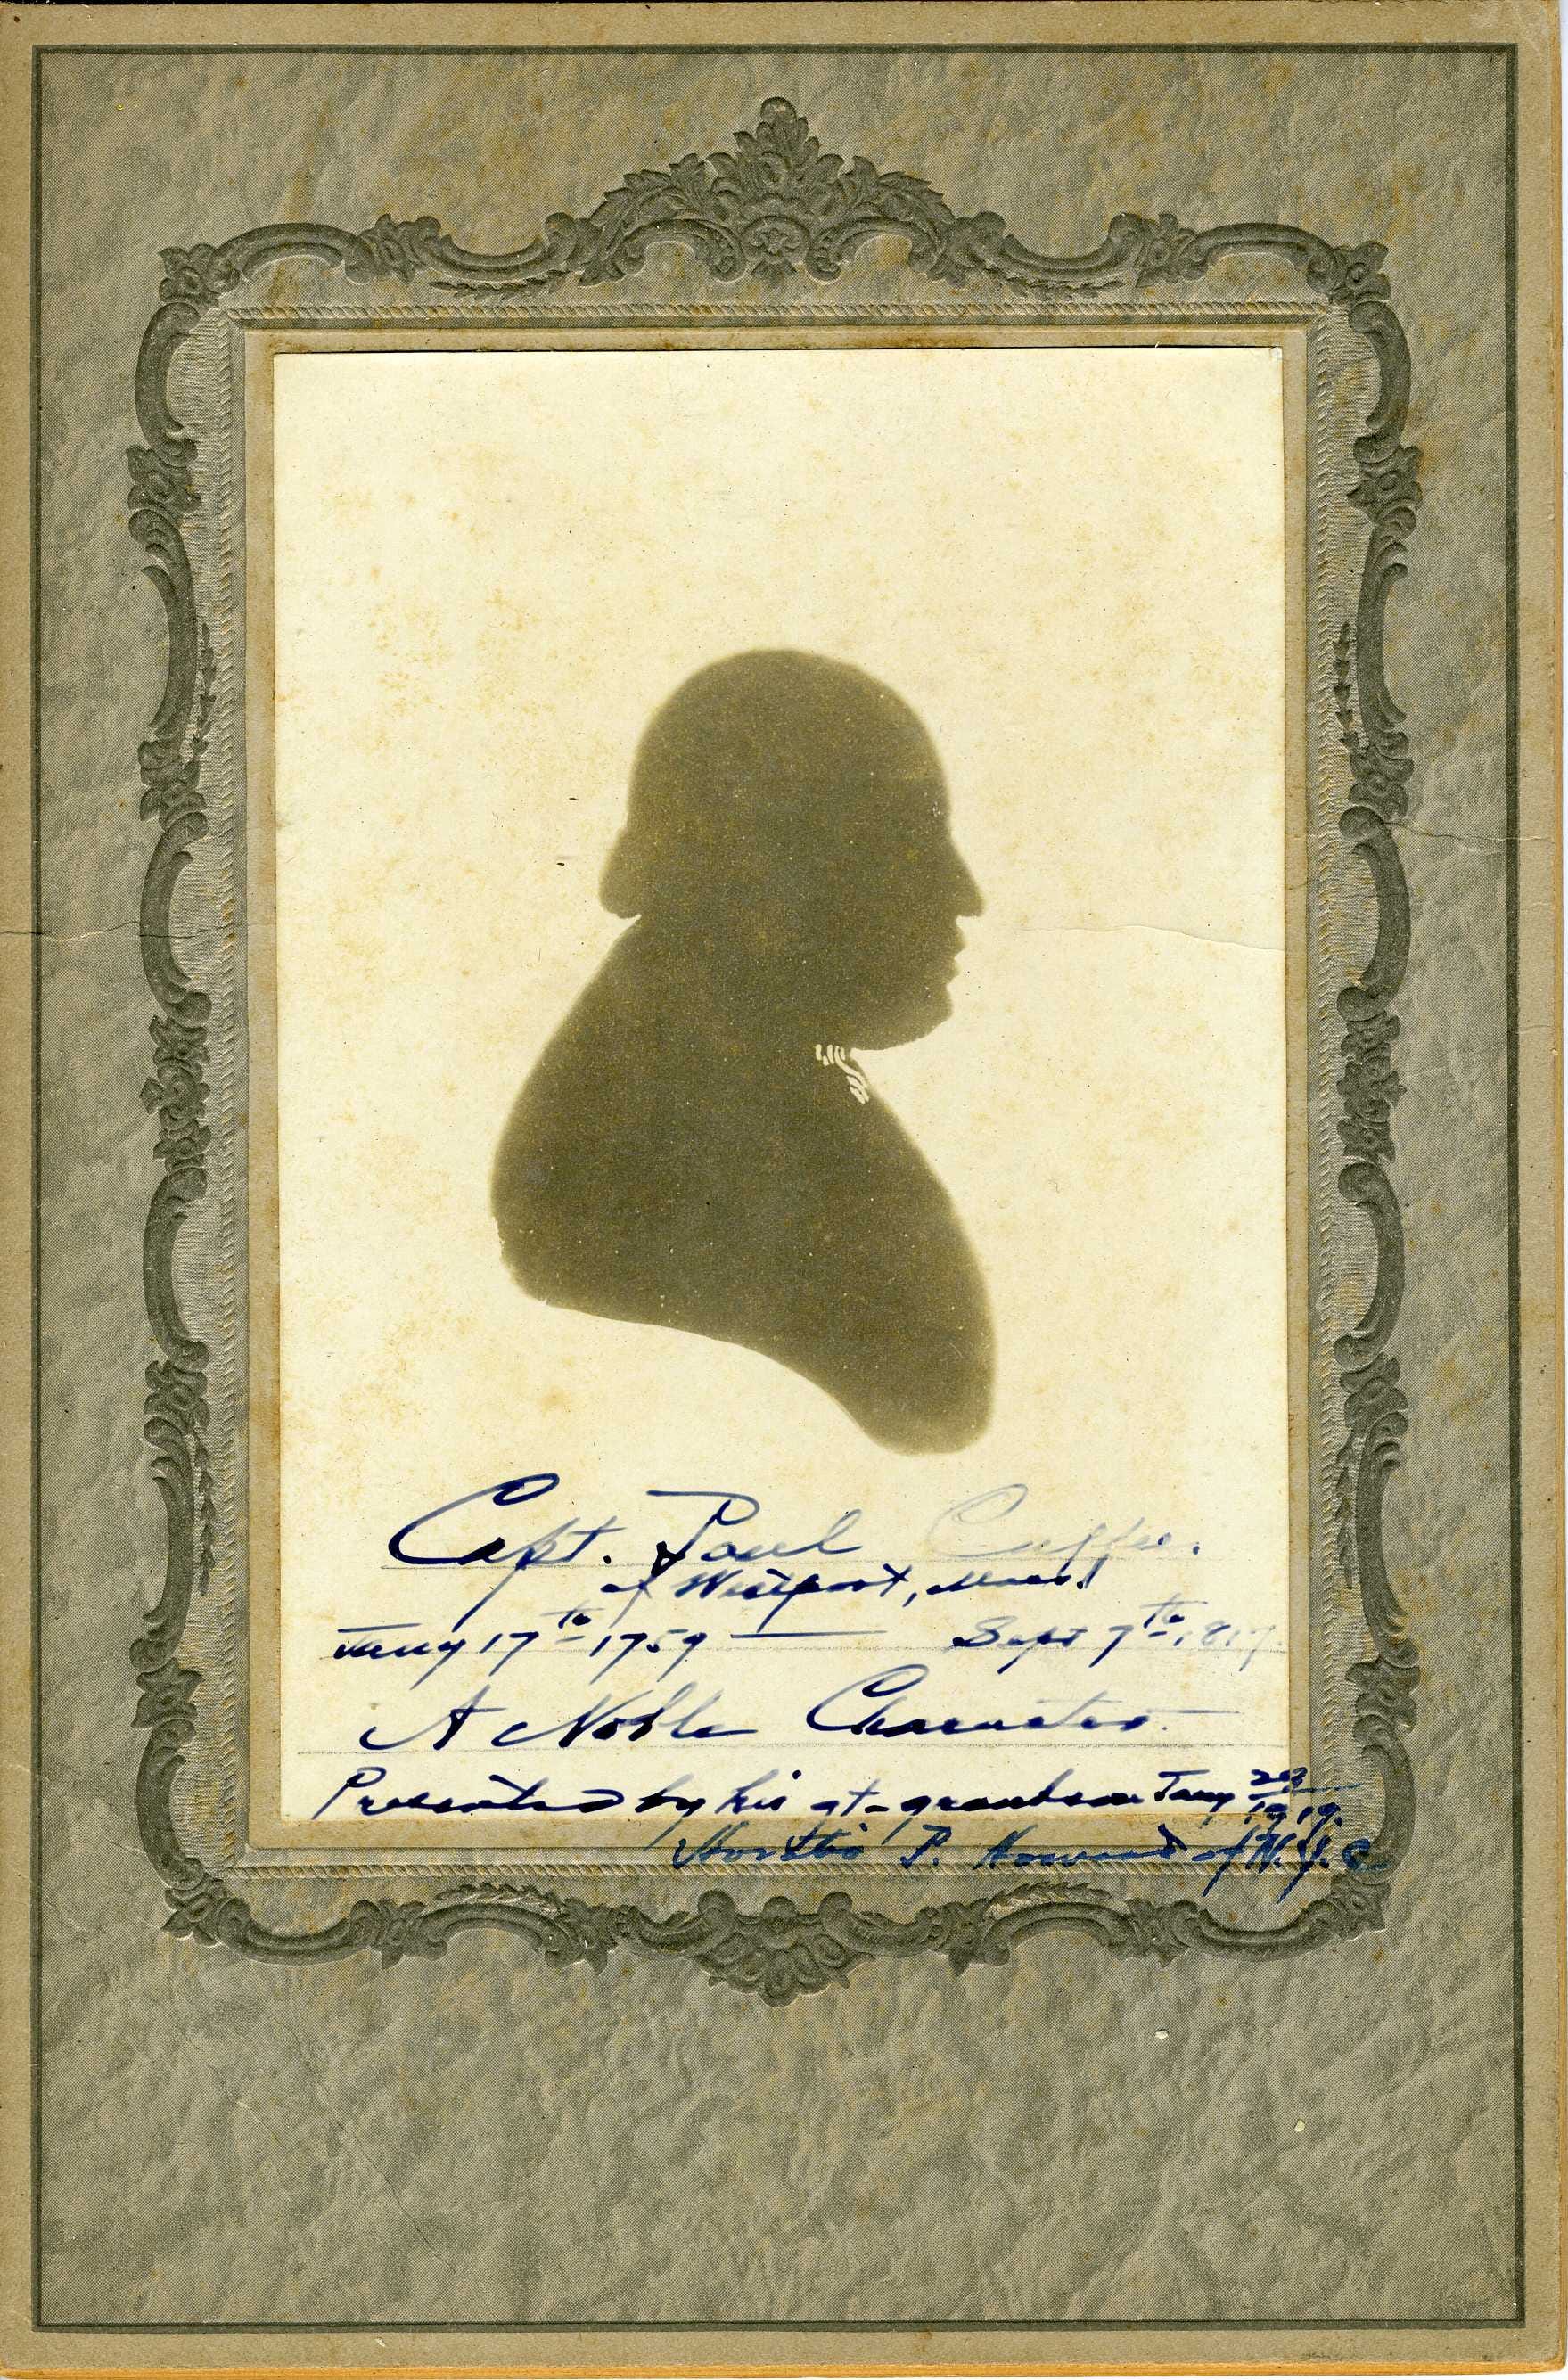 Capt. Paul Cuffee.
of Westport, Mass.
Jany 17th 1759 — Sept 7th 1817.
A Noble Character.
Presented by his gt-grandson Jany
1919.
Horatio P. Howard of N.Y.C